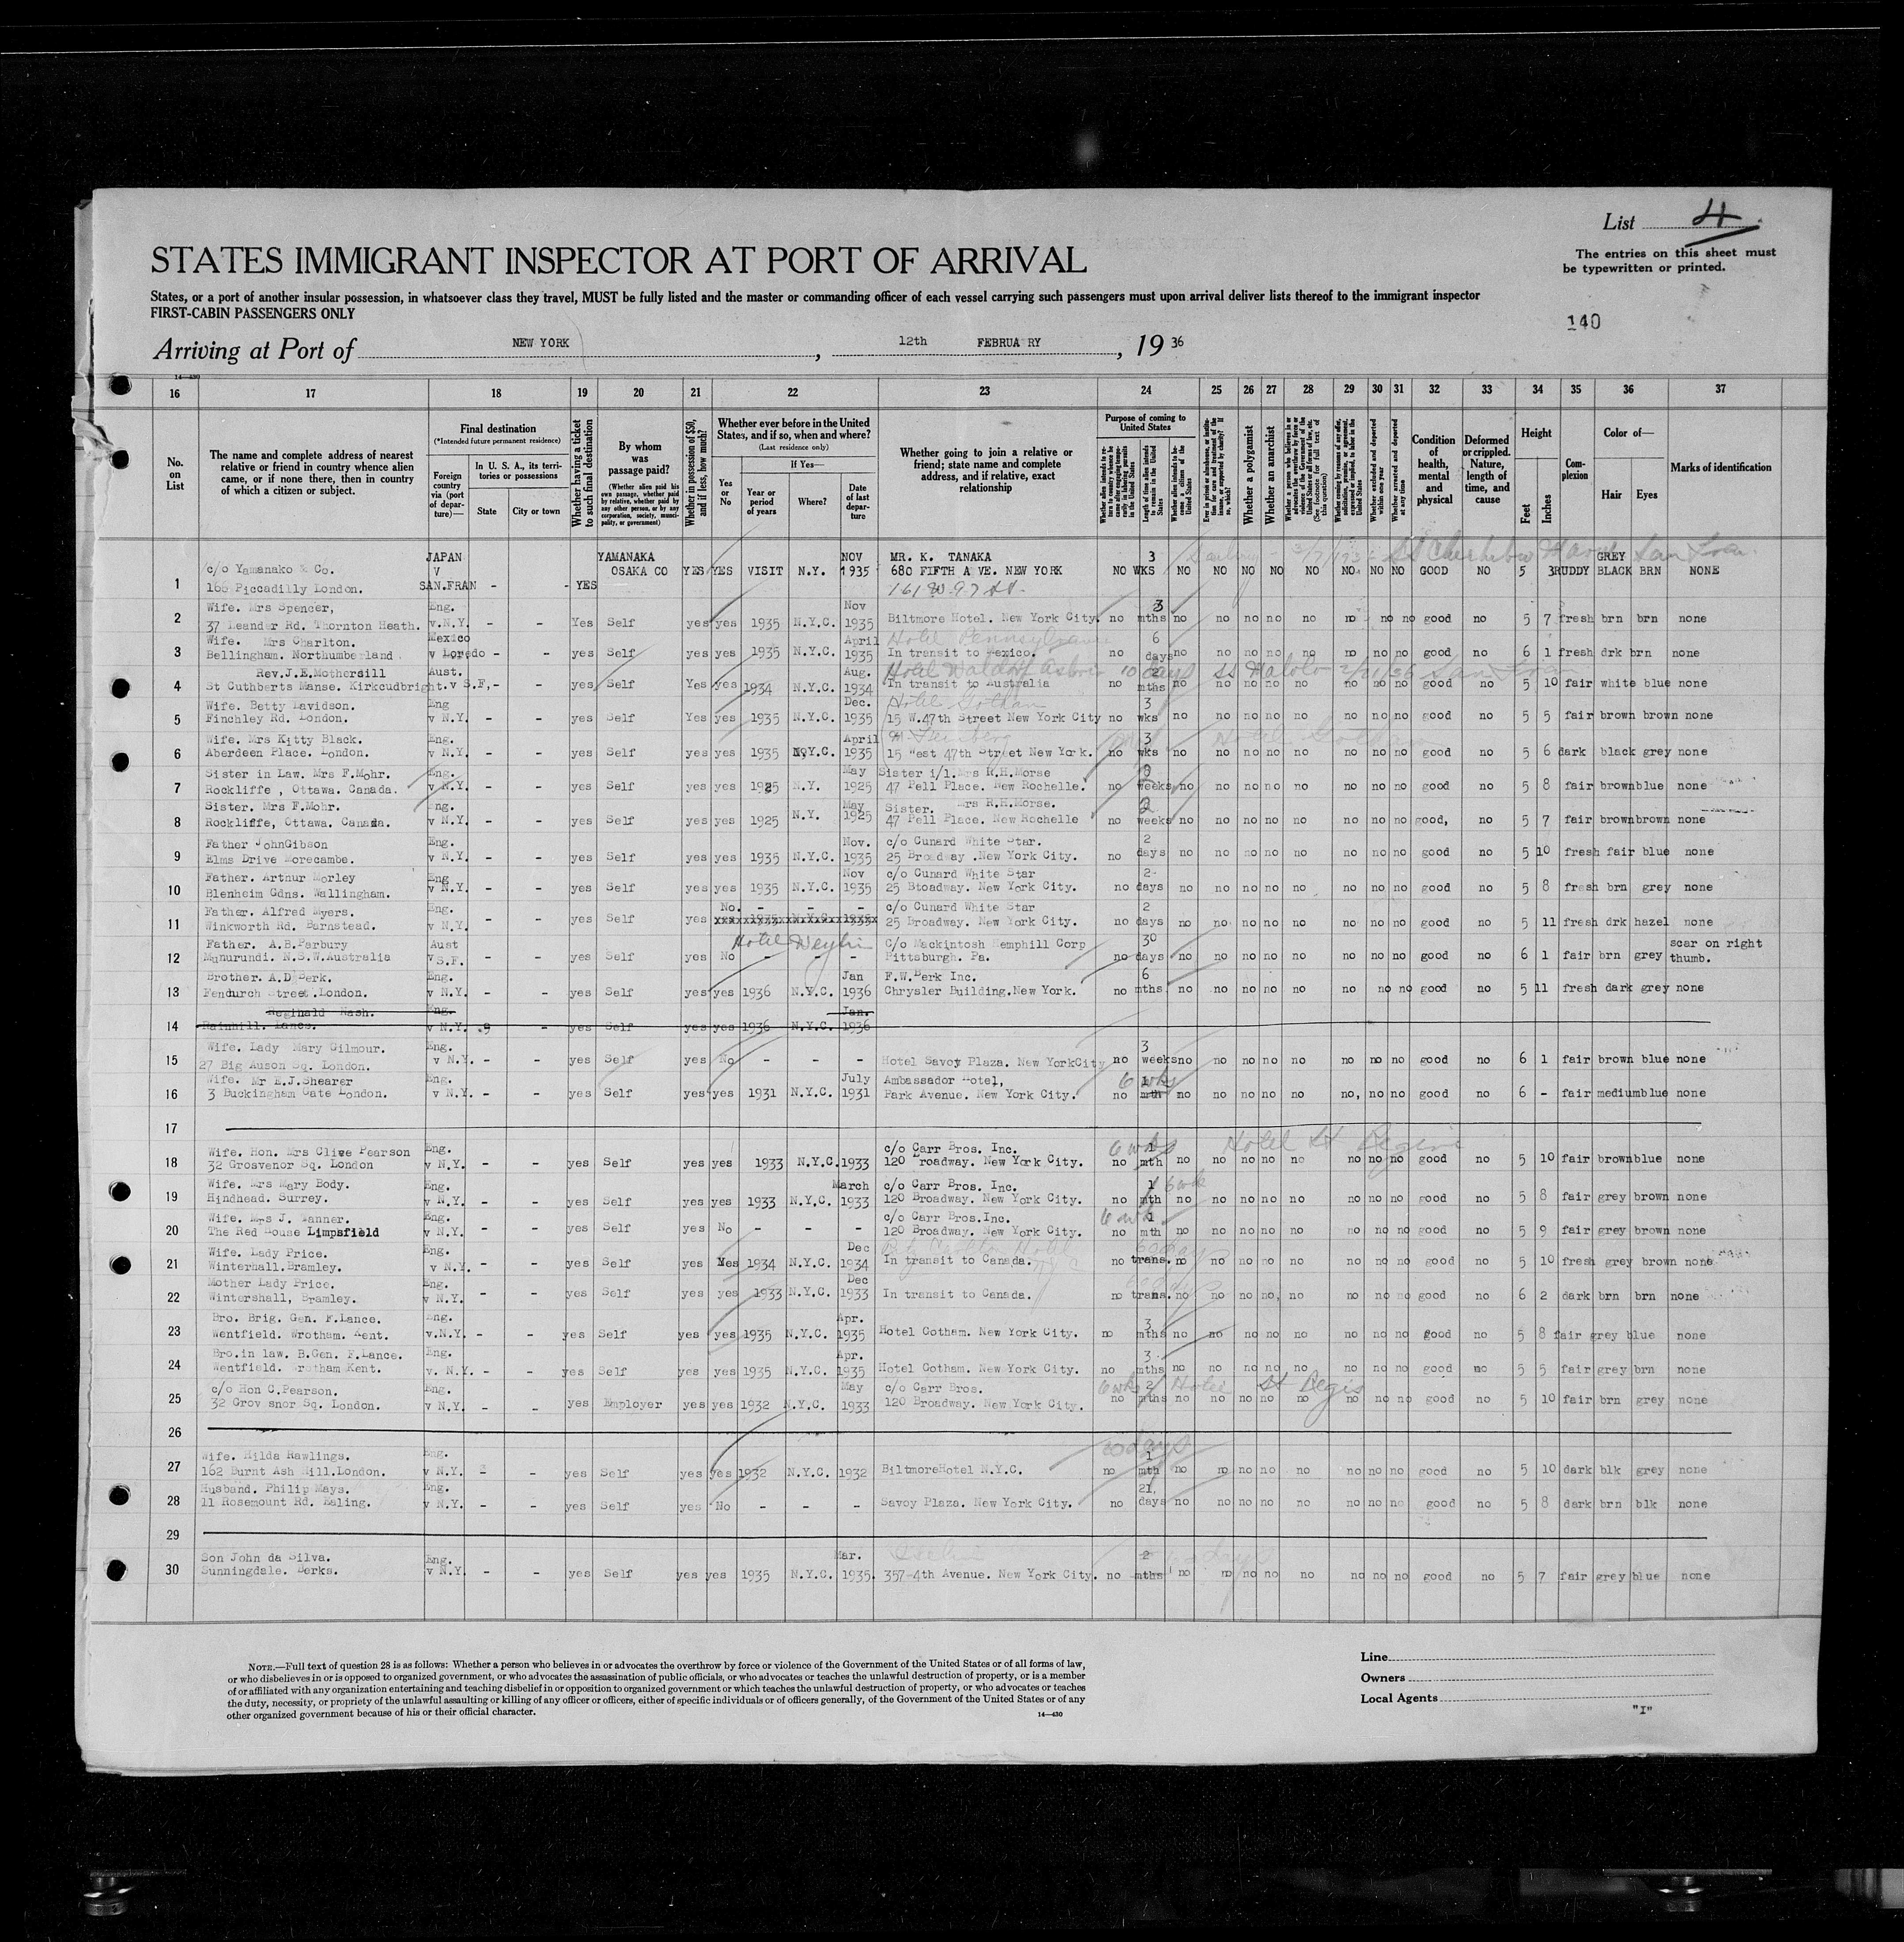 List 4
The entries on this sheet must
be typewritten or printed.
STATES IMMIGRANT INSPECTOR AT PORT OF ARRIVAL
States, or a port of another insular possession, in whatsoever class they travel, MUST be fully listed and the master or commanding officer of each vessel carrying such passengers must upon arrival deliver lists thereof to the immigrant inspector
FIRST-CABIN PASSENGERS ONLY
140
Arriving at Port of NEW YORK , 12th FEBRUARY , 19 36
14—430
16 17 18 19 20 21 22 23 24 25 26 27 28 29 30 31 32 33 34 35 36 37
No. on List
The name and complete address of nearest relative or friend in country whence alien came, or if none there, then in country of which a citizen or subject.
Final destination
(*Intended future permanent residence)
Foreign country via (port of departure)—
In U. S. A., its territories or possessions
State
City or town
Whether having a ticket to such final destination
By whom was passage paid?
(Whether alien paid his own passage, whether paid by relative, whether paid by any other person, or by any corporation, society, municipality, or government)
Whether in possession of $50, and if less, how much?
Whether ever before in the United States, and if so, when and where?
(Last residence only)
Yes or No
If Yes—
Year or period of years
Where?
Date of last departure
Whether going to join a relative or friend; state name and complete address, and if relative, exact relationship
Purpose of coming to United States
Length of time alien intends to remain in the United States
Whether a polygamist
Whether an anarchist
Whether arrested and deported at any time
Condition of health, mental and physical
Deformed or crippled. Nature, length of time, and cause
Height
Feet
Inches
Complexion
Color of—
Hair
Eyes
Marks of identification
1 c/o Yamanako & Co. JAPAN YAMANAKA NOV MR. K. TANAKA 3 GREY
166 Piccadilly London. V SAN.FRAN - - YES OSAKA CO YES YES VISIT N.Y. 1935 680 FIFTH AVE. NEW YORK NO WKS NO NO NO NO NO NO NO NO GOOD NO 5 3 RUDDY BLACK BRN NONE
161 W 97 St.
2 Wife. Mrs Spencer, Eng. Nov 3
37 Leander Rd. Thornton Heath. v.N.Y. - - Yes Self yes yes 1935 N.Y.C. 1935 Biltmore Hotel. New York City. no mths no no no no no no no no good no 5 7 fresh brn brn none
3 Wife. Mrs Charlton. Mexico April Hotel Pennsylvania 6
Bellingham. Northumberland v Loredo - - yes Self yes yes 1935 N.Y.C. 1935 In transit to Mexico. no days no no no no no no no no good no 6 1 fresh drk brn none
4 Rev.J.E.Mothersill Aust. Aug. Hotel Waldorf Astoria 10 days SS Malolo 2/21/36 San Fran
St Cuthberts Manse. Kirkcudbright. v S.F, - - yes Self Yes yes 1934 N.Y.C. 1934 In transit to Australia no mths no no no no no no no no good no 5 10 fair white blue none
5 Wife. Betty Davidson. Eng Dec. Hotel Gotham 3
Finchley Rd. London. v N.Y. - - yes Self Yes yes 1935 N.Y.C. 1935 15 W.47th Street New York City no wks no no no no no no no no good no 5 5 fair brown brown none
6 Wife. Mrs Kitty Black. Eng. April 3
Aberdeen Place. London. v N.Y. - - yes Self yes yes 1935 N.Y.C. 1935 15 West 47th Street New York. no wks no no no no no no no no good no 5 6 dark black grey none
7 Sister in Law. Mrs F.Mohr. Eng. May Sister i/l. Mrs R.H.Morse
Rockliffe , Ottawa. Canada. v N.Y. - - yes Self yes yes 1925 N.Y. 1925 47 Pell Place. New Rochelle. no weeks no no no no no no no no good no 5 8 fair brown blue none
8 Sister. Mrs F.Mohr. Eng. May Sister. Mrs R.H.Morse. 2
Rockliffe, Ottawa. Canada. v N.Y. - - yes Self yes yes 1925 N.Y. 1925 47 Pell Place. New Rochelle no weeks no no no no no no no no good, no 5 7 fair brown brown none
9 Father JohnGibson Eng. Nov. c/o Cunard White Star. 2
Elms Drive Morecambe. v N.Y. - - yes Self yes yes 1935 N.Y.C. 1935 25 Broadway .New York City. no days no no no no no no no no good no 5 10 fresh fair blue none
10 Father. Arthur Morley Eng Nov c/o Cunard White Star 2
Blenheim Gdns. Wallingham. v N.Y. - - yes Self yes yes 1935 N.Y.C. 1935 25 Btoadway. New York City. no days no no no no no no no no good no 5 8 fresh brn grey none
11 Father. Alfred Myers. Eng. No. - - - c/o Cunard White Star 2
Winkworth Rd. Barnstead. v N.Y. - - yes Self yes 25 Broadway. New York City. no days no no no no no no no no good no 5 11 fresh drk hazel none
12 Father. A.B.Parbury Aust Hotel Weylin C/o Mackintosh Hemphill Corp 30 scar on right
Munurundi. N.S.W.Australia v S.F. - - yes Self yes No - - - Pittsburgh. Pa. no days no no no no no no no no good no 6 1 fair brn grey thumb.
13 Brother. A.D Berk. Eng. Jan F.W.Berk Inc. 6
Fenchurch Street.London. v N.Y. - - yes Self yes yes 1936 N.Y.C. 1936 Chrysler Building.New York. no mths. no no no no no no no no good no 5 11 fresh dark grey none
14 Reginald Nash. Eng. Jan.
Rainhill. Lancs. v N.Y. - yes Self yes yes 1936 N.Y.C. 1936
15 Wife. Lady Mary Gilmour. Eng. 3
27 Big Auson Sq. London. v N.Y. - - yes Self yes No - - - Hotel Savoy Plaza. New YorkCity no weeks no no no no no no no no good no 6 1 fair brown blue none
16 Wife. Mr E.J.Shearer Eng. July Ambassador Hotel, 6 wks
3 Buckingham Gate London. v N.Y. - - yes Self yes yes 1931 N.Y.C. 1931 Park Avenue. New York City. no mth no no no no no no, no no good no 6 - fair medium blue none
17
18 Wife. Hon. Mrs Clive Pearson Eng. c/o Carr Bros. Inc. 6 wks 1 Hotel St Regis
32 Grosvenor Sq. London v N.Y. - - yes Self yes yes 1933 N.Y.C. 1933 120 Broadway. New York City. no mth no no no no no no no no good no 5 10 fair brown blue none
19 Wife. Mrs Mary Body. Eng. March c/o Carr Bros. Inc. 1 6 wk
Hindhead. Surrey. v N.Y. - - yes Self yes yes 1933 N.Y.C. 1933 120 Broadway. New York City. no mth no no no no no no no no good no 5 8 fair grey brown none
20 Wife. Mrs J. Tanner. Eng. c/o Carr Bros.Inc. 6 wk 1
The Red House Limpsfield v N.Y. - - yes Self yes No - - - 120 Broadway. New York City. no mth no no no no no no no no good no 5 9 fair grey brown none
21 Wife. Lady Price. Eng. Dec 60 days
Winterhall.Bramley. v N.Y. - - yes Self yes Yes 1934 N.Y.C. 1934 In transit to Canada. no trans. no no no no no no no no good no 5 10 fresh grey brown none
22 Mother Lady Price. Eng. Dec
Wintershall, Bramley. v N.Y. - - yes Self yes yes 1933 N.Y.C. 1933 In transit to Canada. no trans. no no no no, no no no no good no 6 2 dark brn brn none
23 Bro. Brig. Gen. F.Lance. Eng. Apr. 3
Wentfield. Wrotham. Kent. v.N.Y. - - yes Self yes yes 1935 N.Y.C. 1935 Hotel Gotham. New York City. no mths no no no no no no no no good no 5 8 fair grey blue none
24 Bro.in law. B.Gen. F.Lance. Eng. Apr. 3
Wentfield. Wrotham Kent. v. N.Y. - - yes Self yes yes 1935 N.Y.C. 1935 Hotel Gotham. New York City. no mths no no no no no no no no good no 5 5 fair grey brn none
25 c/o Hon C.Pearson. Eng. May c/o Carr Bros. 6 wks 2 Hotel St Regis
32 Grov snor Sq. London. v N.Y. - - yes Employer yes yes 1932 N.Y.C. 1933 120 Broadway. New York City. no mths no no no no no no no no good no 5 10 fair brn grey none
26
27 Wife. Hilda Rawlings. Eng. 20 days 1
162 Burnt Ash Hill.London. v N.Y. - - yes Self yes yes 1932 N.Y.C. 1932 BiltmoreHotel N.Y.C. no mth no no no no no no no no good no 5 10 dark blk grey none
28 Husband. Philip Mays. Eng. 21,
11 Rosemount Rd. Ealing. v N.Y. - - yes Self yes No - - - Savoy Plaza. New York City. no days no no no no no no no no good no 5 8 dark brn blk none
29
30 Son John da Silva. Eng. Mar. 2
Sunningdale. Berks. v N.Y. - - yes Self yes yes 1935 N.Y.C. 1935. 357-4th Avenue. New York City. no mths no no no no no no no no good no 5 7 fair grey blue none
NOTE.—Full text of question 28 is as follows: Whether a person who believes in or advocates the overthrow by force or violence of the Government of the United States or of all forms of law,
or who disbelieves in or is opposed to organized government, or who advocates the assassination of public officials, or who advocates or teaches the unlawful destruction of property, or is a member
of or affiliated with any organization entertaining and teaching disbelief in or opposition to organized government or which teaches the unlawful destruction of property, or who advocates or teaches
the duty, necessity, or propriety of the unlawful assaulting or killing of any officer or officers, either of specific individuals or of officers generally, of the Government of the United States or of any
other organized government because of his or their official character.
14—430
Line
Owners
Local Agents
"I"